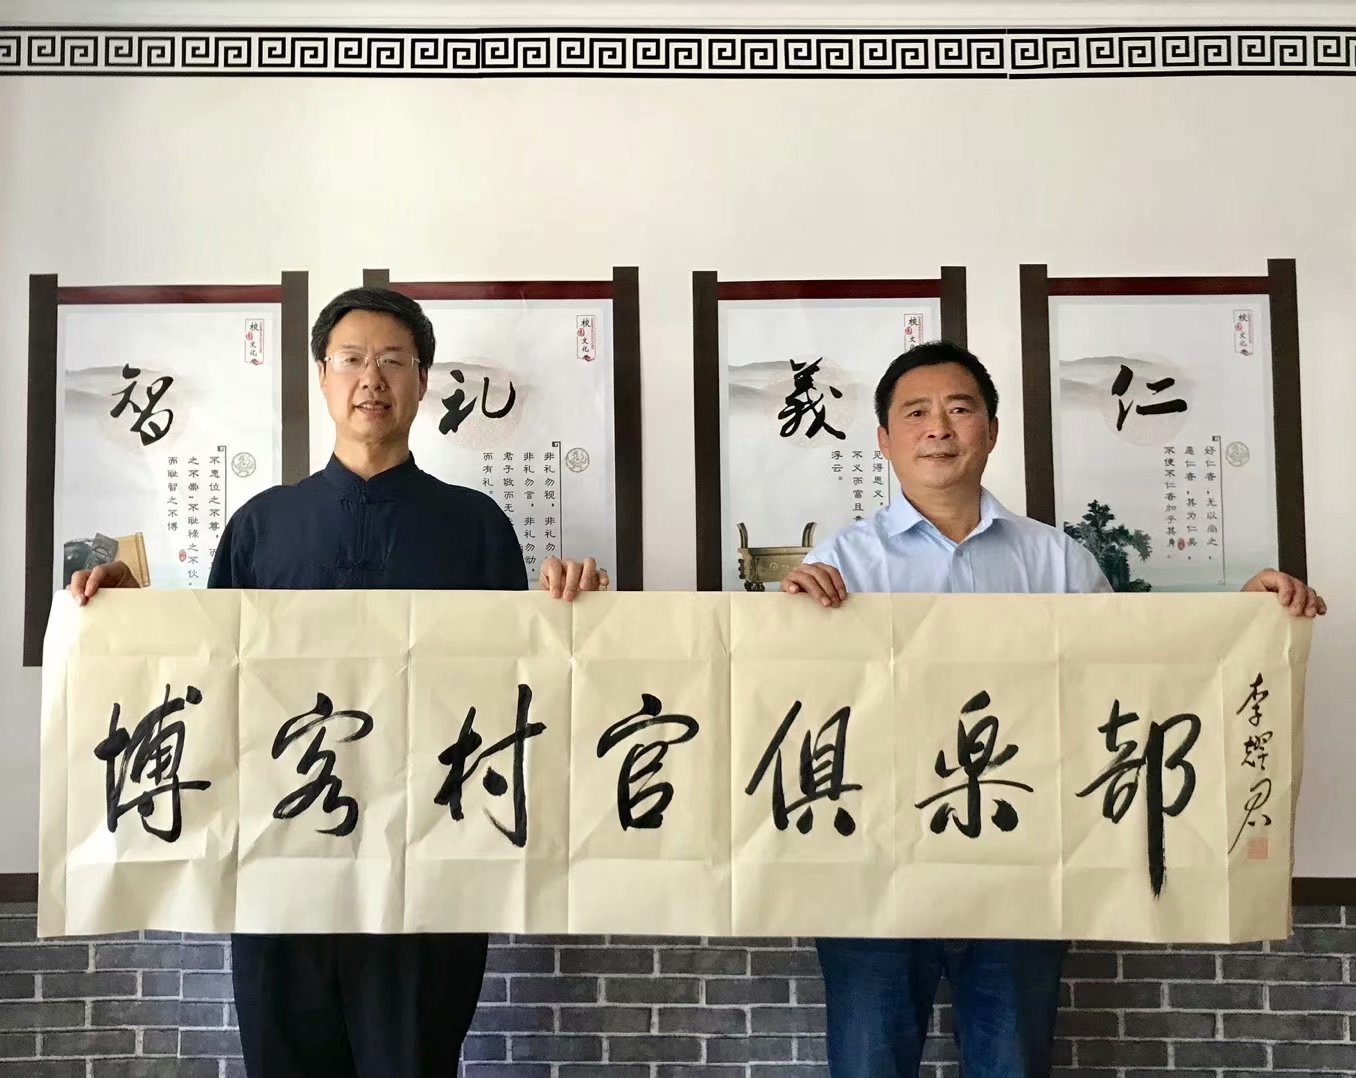 智
校园文化
不患位之不尊，而
之不崇，不耻禄之不伙，
而耻智之不博
礼
校园文化
非礼勿视，非礼勿
非礼勿言，非礼勿动，
君子敬而无
而有礼。
義
校园文
见得思义，
不义而富且贵
浮云。
仁
校园文化
好仁者，无以尚之，
恶仁者，其为仁矣，
不使不仁者加乎其身。
博客村官俱楽部
李耀君